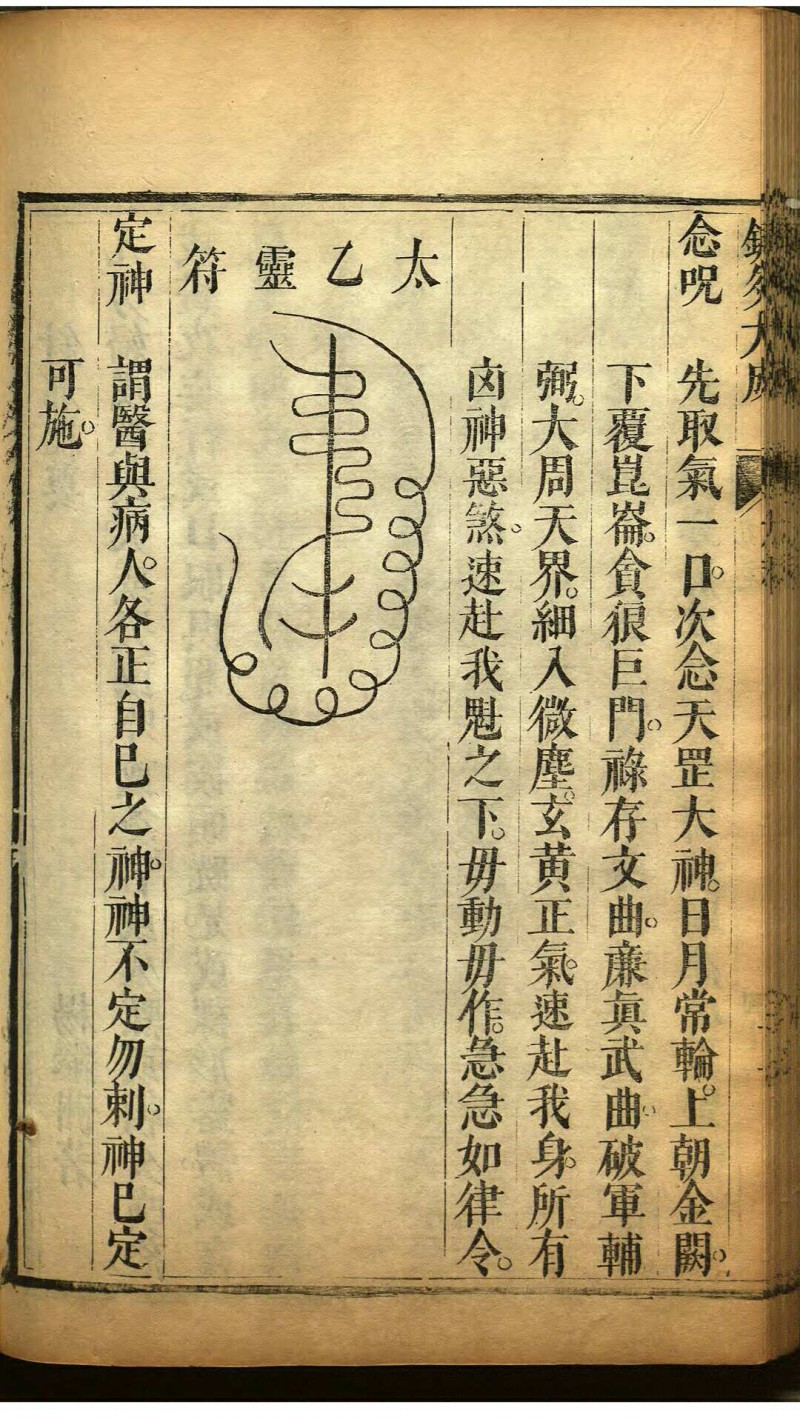 鍼灸大成
念呪　先取氣一口。次念天罡大神。日月常輪。上朝金闕。
下覆崑崙。貪狼巨門。祿存文曲。廉眞武曲。破軍輔
弼。大周天界。細入微塵。玄黃正氣。速赴我身。所有
凶神惡煞。速赴我魁之下。毋動毋作。急急如律令。
太乙靈符
定神　謂醫與病人。各正自已之神。神不定勿刺。神已定
可施。